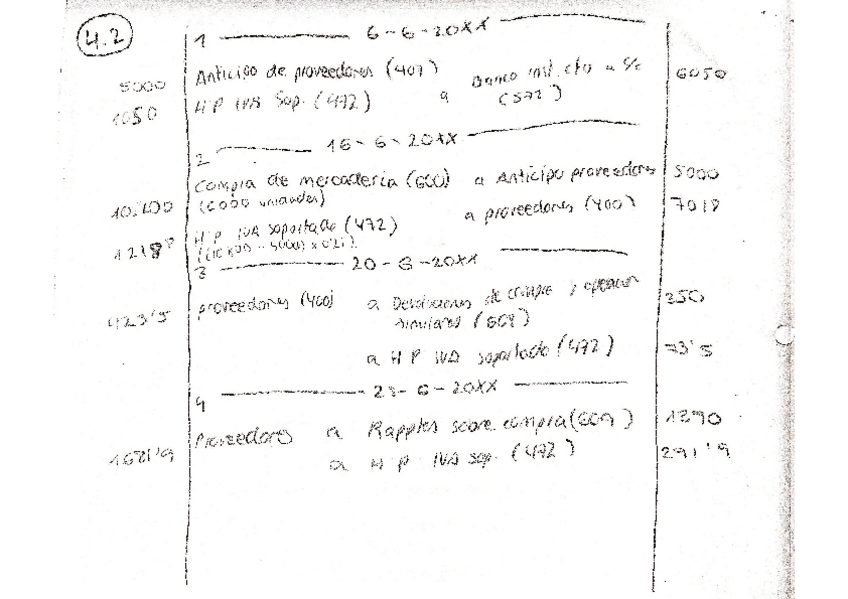 4.2
1 6-6-20XX
5000 Anticipo de proveedores (407) a Banco inst. cto a s/c 6050
1050 H P IVA Sop. (472) (572)
2 16-6-20XX
10.800 Compra de mercaderia (600) a Anticipo proveedores 5000
(6000 unidades) a proveedores (400) 7018
1218 H P IVA soportado (472)
((10.800 - 5000) x 0'21)
3 20-6-20XX
423'5 proveedores (400) a Devoluciones de compra y operacion 350
similares (608)
a H P IVA soportado (472) 73'5
4 23-6-20XX
Proveedores a Rapples sobre compra (609) 1390
1681'9 a H P IVA sop. (472) 291'9